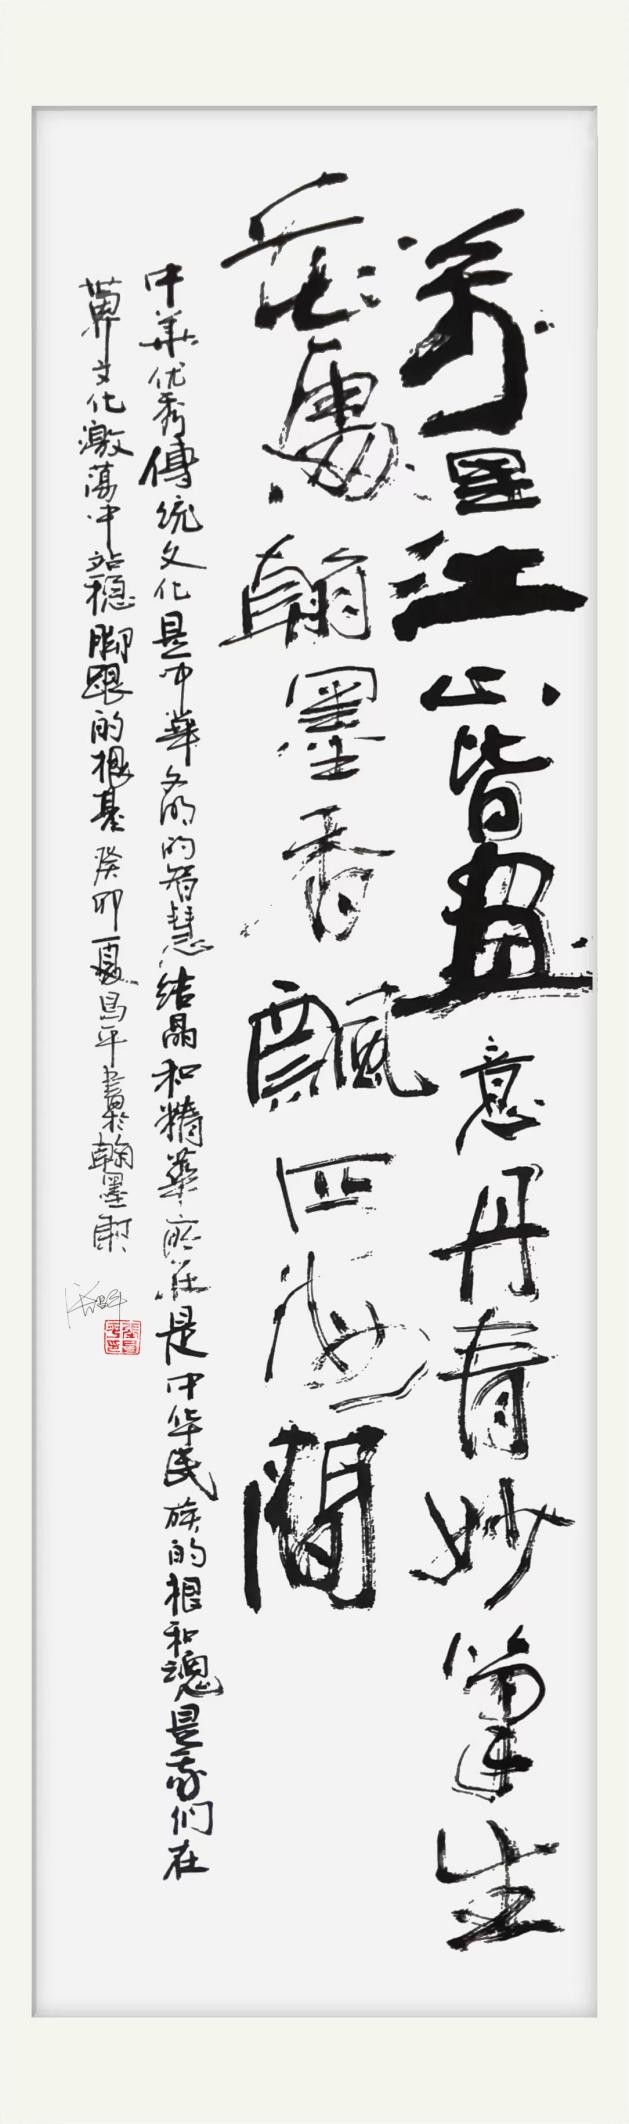 万里江山皆画意丹青妙笔生
花处翰墨香飘四海间
中华优秀傳统文化是中華文明的智慧结晶和精華所在是中华民族的根和魂是我们在
世界文化激荡中站稳脚跟的根基 癸卯夏昌平書於翰墨轩